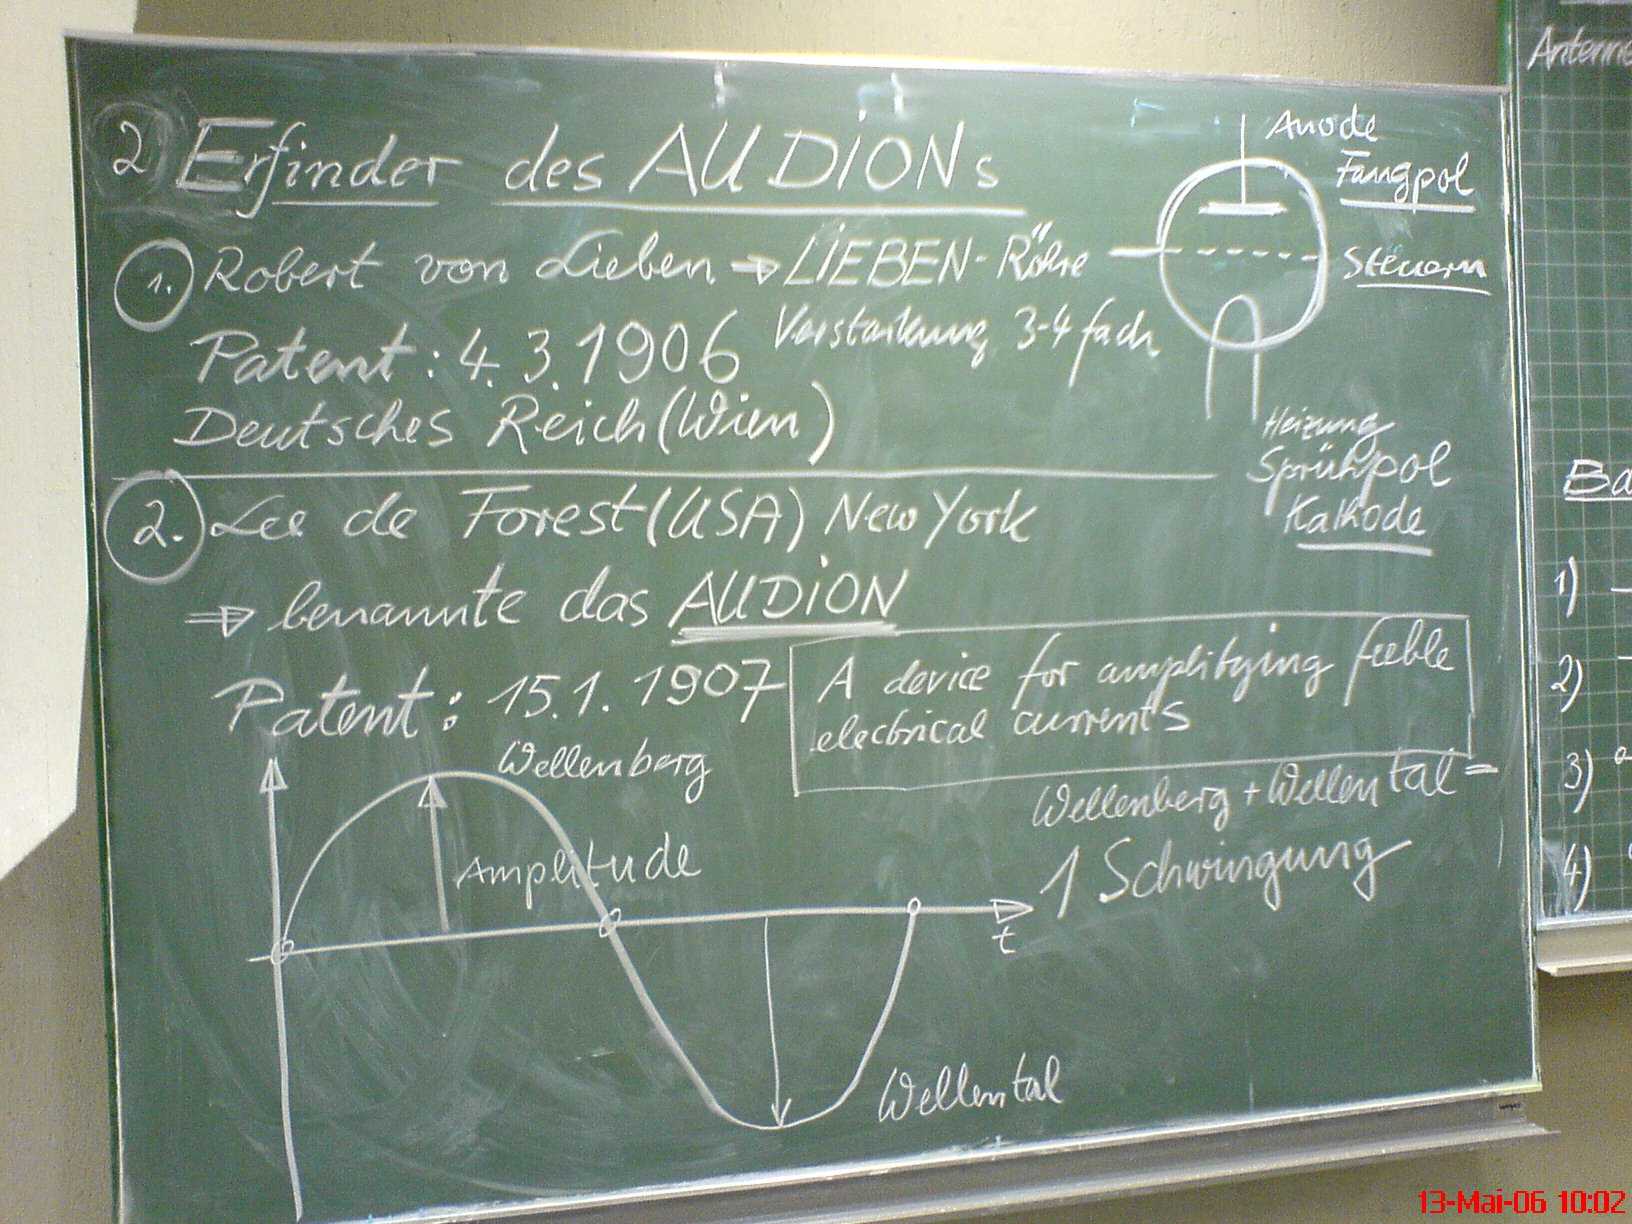 2) Erfinder des AUDIONs
1. Robert von Lieben → LIEBEN-Röhre
Verstärkung 3-4 fach
Patent: 4. 3. 1906
Deutsches Reich (Wien)
Anode
Fangpol
Steuern
Heizung
Sprühpol
Kathode
2. Lee de Forest (USA) New York
⇒ benannte das AUDION
Patent: 15.1. 1907
A device for amplifying feeble
electrical currents
Wellenberg
Amplitude
Wellenberg + Wellental =
1 Schwingung
t
Wellental
Antenne
Ba
1)
2)
3)
4)
13-Mai-06 10:02